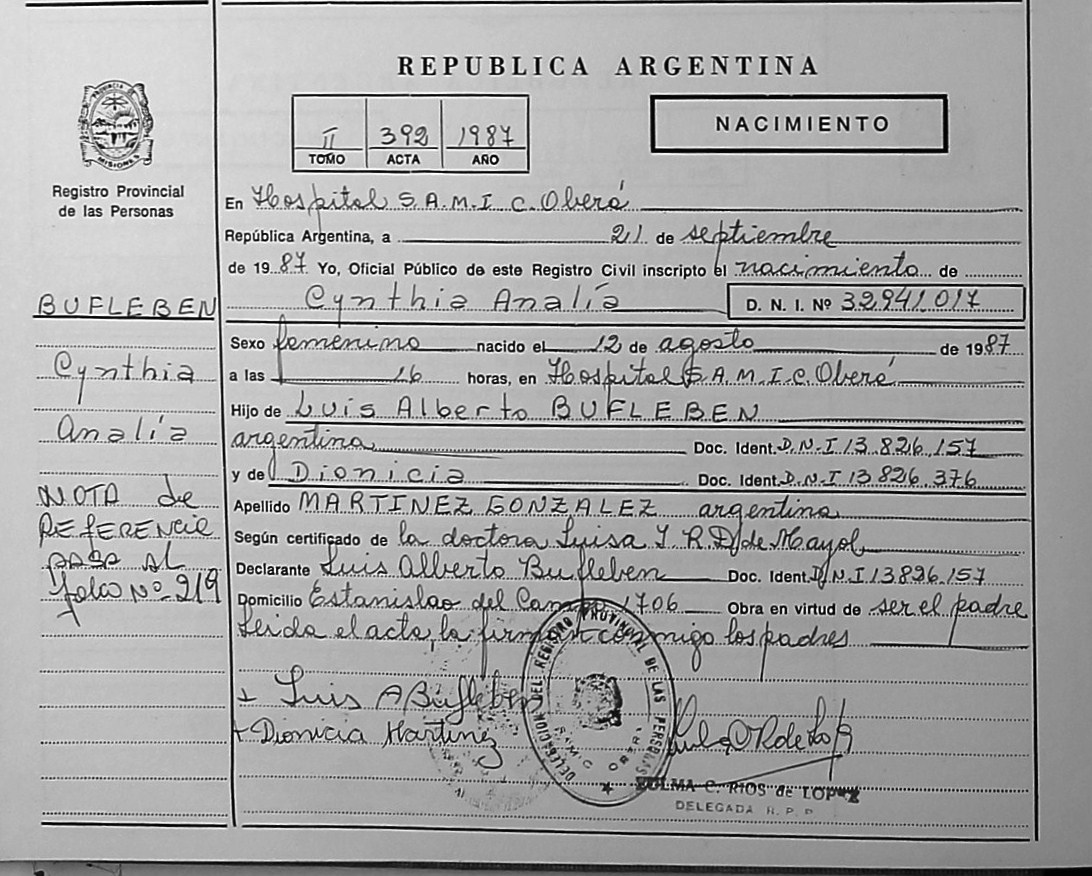 REPUBLICA ARGENTINA
PROVINCIA DE
MISIONES
II 392 1987
TOMO ACTA AÑO
NACIMIENTO
Registro Provincial
de las Personas
En Hospital S.A.M.I.C. Oberá
República Argentina, a 21 de septiembre
de 1987 Yo, Oficial Público de este Registro Civil inscripto el nacimiento de
Cynthia Analía D. N. I. Nº 32941.017
Sexo femenino nacido el 12 de agosto de 1987
a las 16 horas, en Hospital S.A.M.I.C. Oberá
Hijo de Luis Alberto BUFLEBEN
argentina Doc. Ident. D.N.I 13.826.157
y de Dionicia Doc. Ident. D.N.I 13826.376
Apellido MARTINEZ GONZALEZ argentina
Según certificado de la doctora Luisa R. D. de Mayol
Declarante Luis Alberto Bufleben Doc. Ident. D.N.I. 13826.157
Domicilio Estanislao del Campo 1706 Obra en virtud de ser el padre
Leida el acta, la firman conmigo los padres
BUFLEBEN
Cynthia
Analía
NOTA de
REFERENCIA
PASA AL
folio Nº 219
+ Luis A Bufleben
+ Dionicia Martinez
DELEGACION DEL REGISTRO PROVINCIAL DE LAS PERSONAS
SAMIC OBERA
ZULMA C. RIOS de LOPEZ
DELEGADA R. P. P.